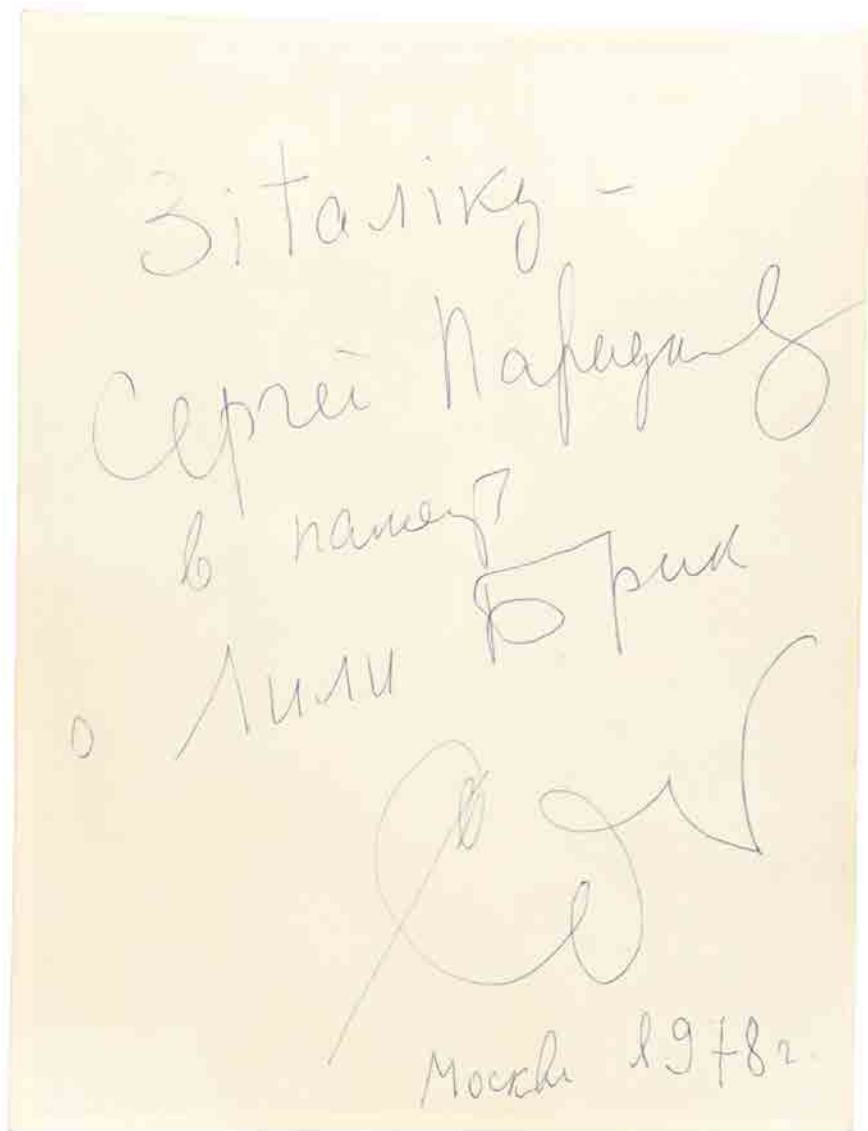 Віталіку –
Сергей Параджанов
в память
о Лили Брик
Москва 1978 г.